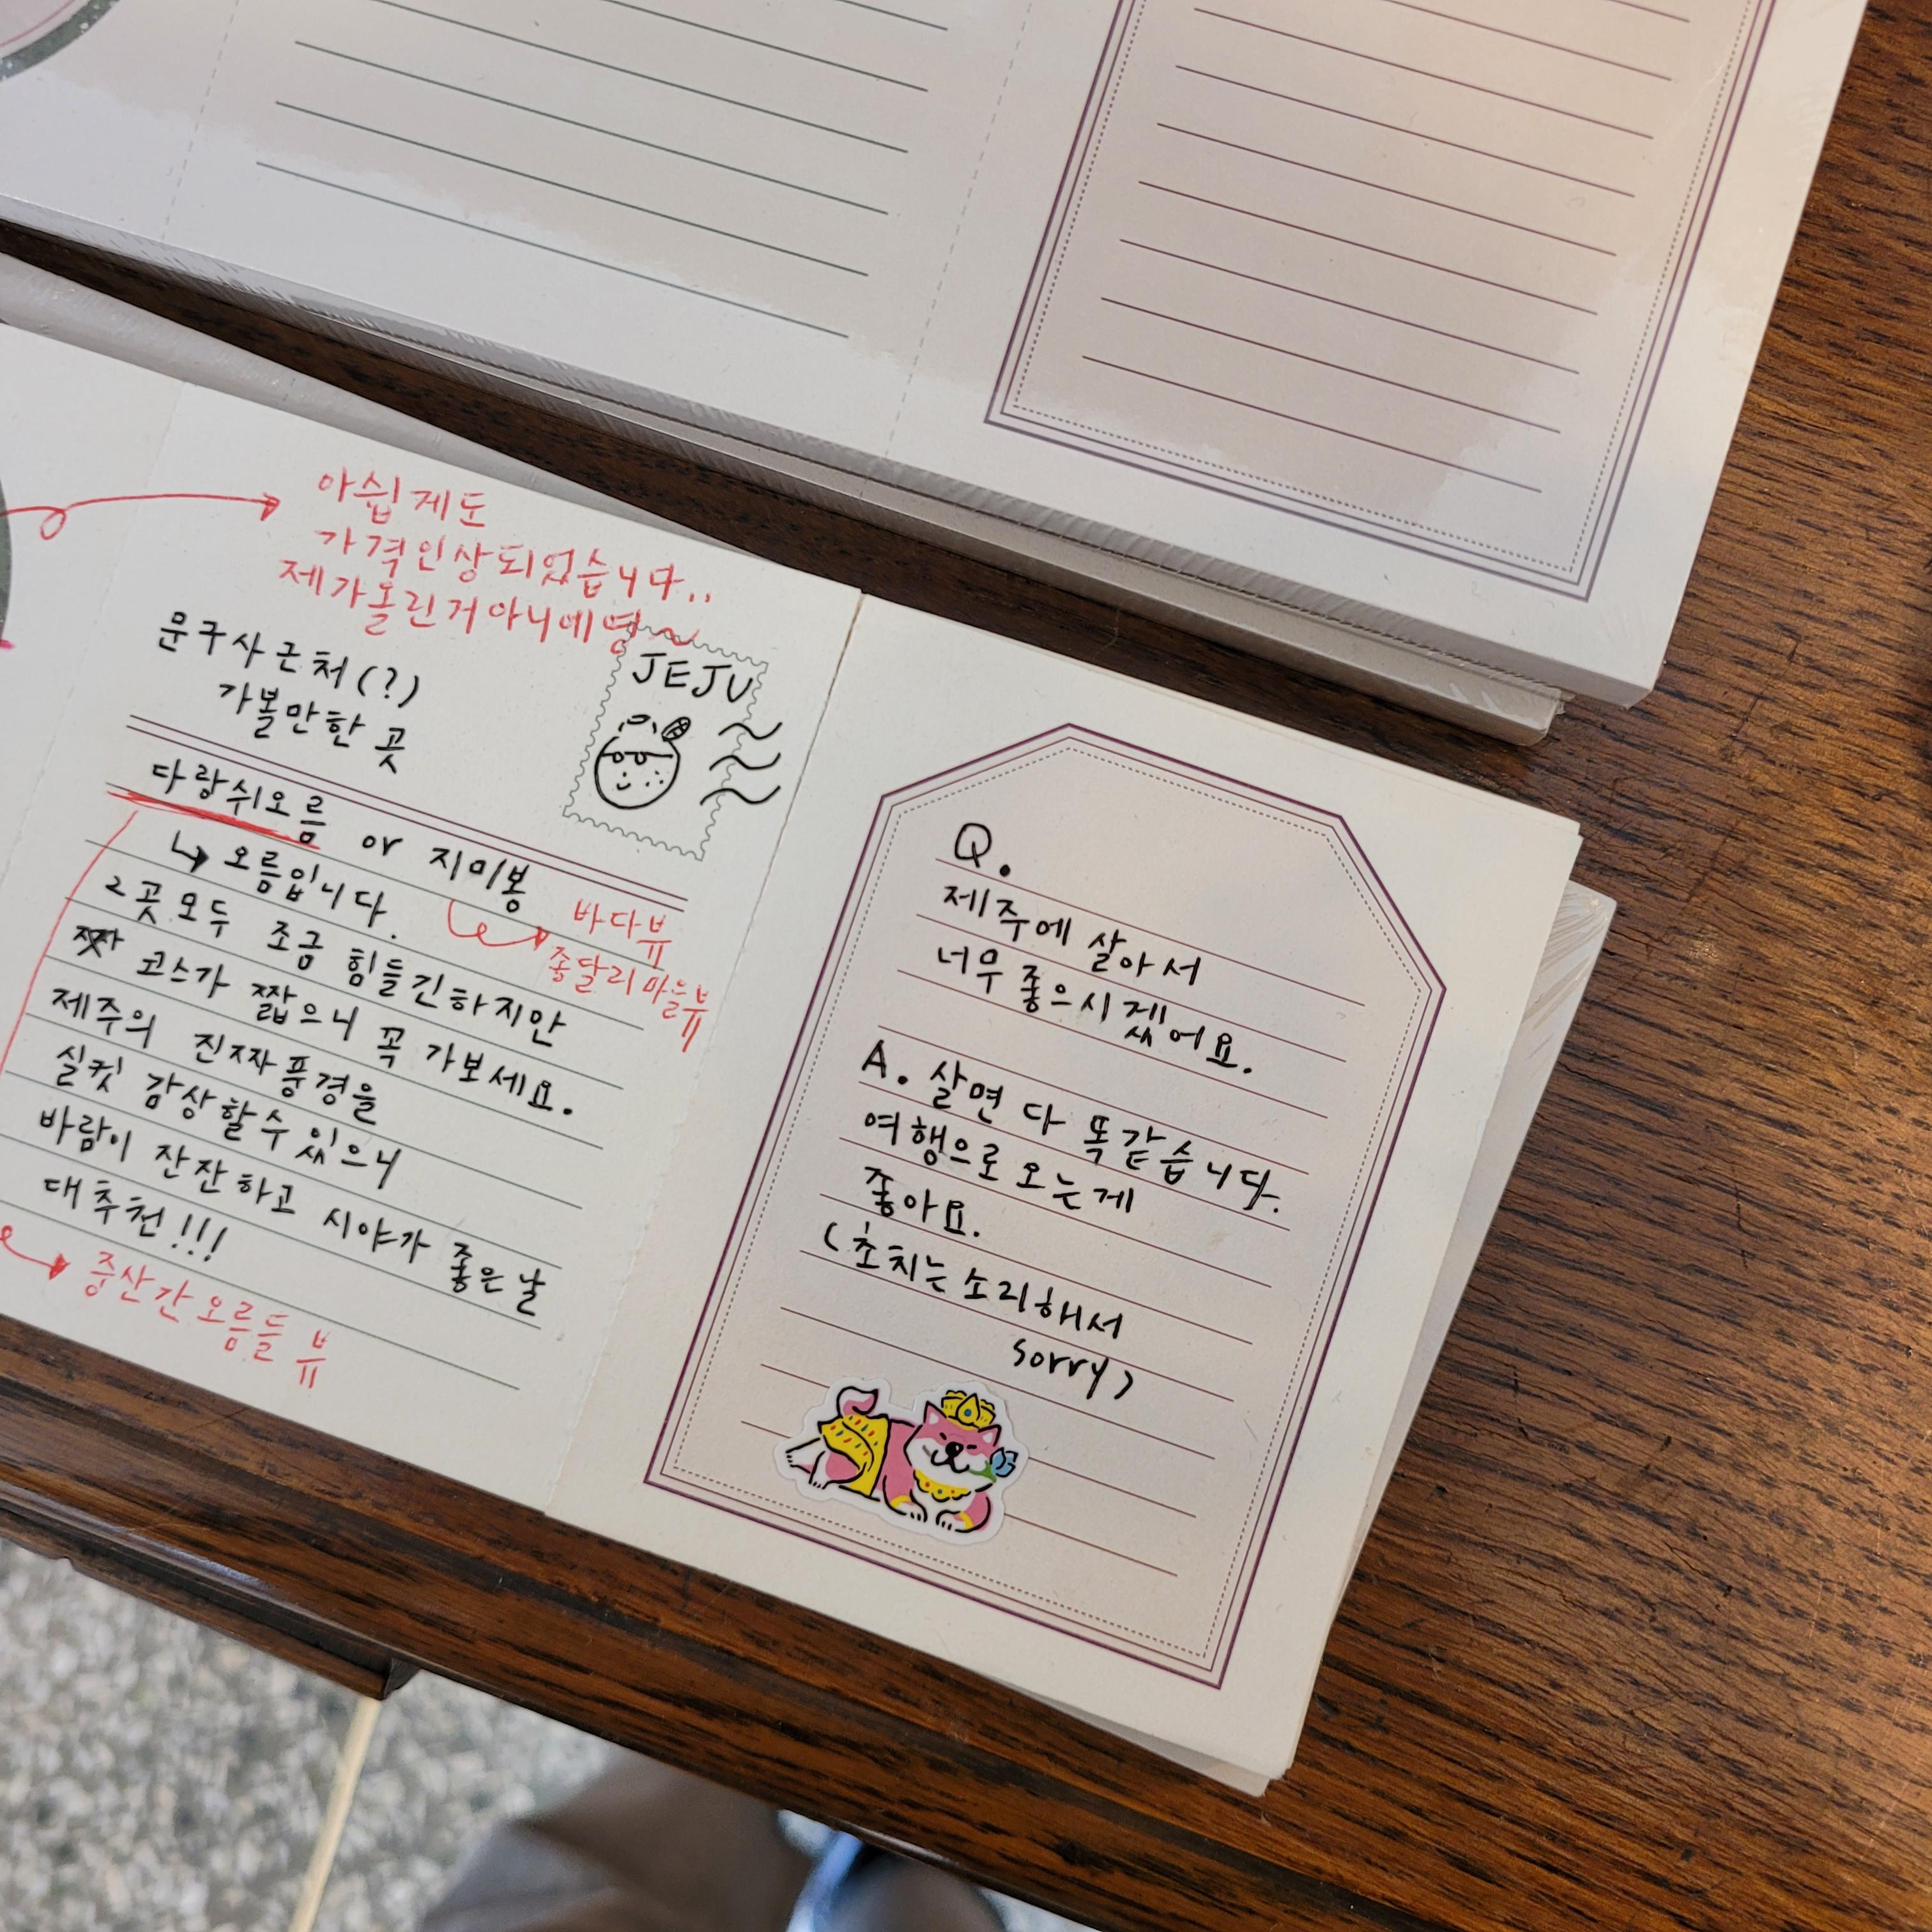 아쉽게도
가격인상되었습니다..
제가올린거아니에영~
문구사근처(?)
가볼만한 곳
JEJU
다랑쉬오름 or 지미봉
↳ 오름입니다.
바다뷰
종달리마을뷰
2곳모두 조금 힘들긴하지만
코스가 짧으니 꼭 가보세요.
제주의 진짜풍경을
실컷 감상할수있으니
바람이 잔잔하고 시야가 좋은날
대추천!!!
중산간오름들 뷰
Q.
제주에 살아서
너무 좋으시겠어요.
A. 살면 다 똑같습니다.
여행으로 오는게
좋아요.
(초치는소리해서
sorry)